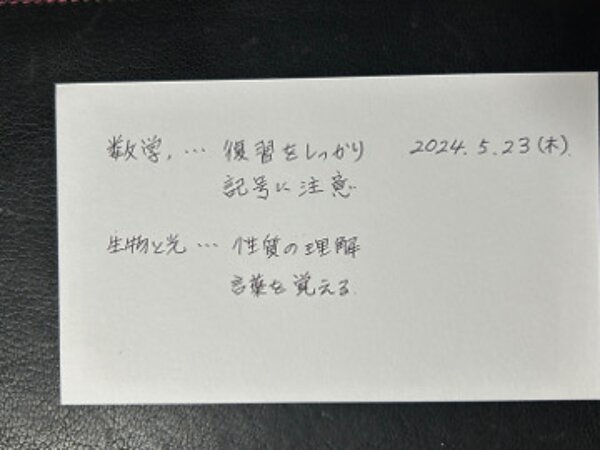 数学, … 復習をしっかり 2024. 5. 23 (木).
記号に注意
生物と光 … 性質の理解
言葉を覚える